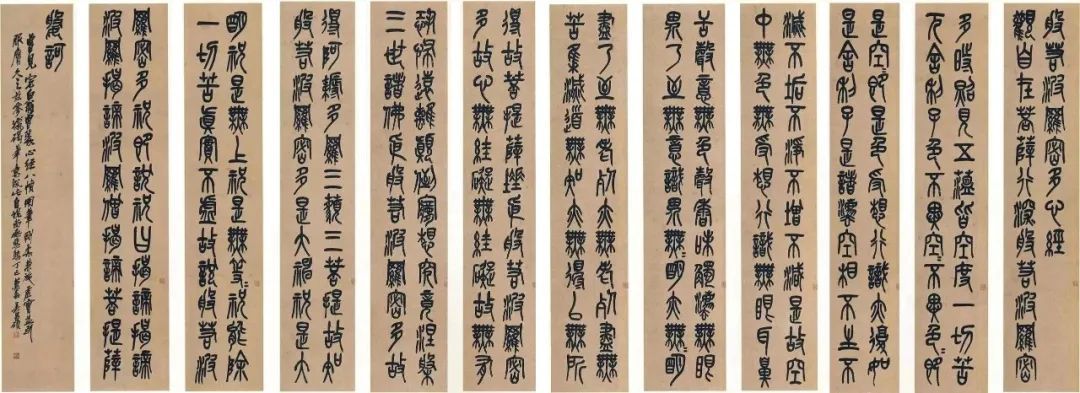 般若波羅密多心經
觀自在菩薩行深般若波羅密
多時照見五蘊皆空度一切苦
厄舍利子色不異空=不異色=即
是空即是色受想行識亦復如
是舍利子是諸灋空相不生不
滅不垢不淨不增不減是故空
中無色無受想行識無眼耳鼻
舌意無色聲香味觸灋無眼
界乃至無意識界無=明亦無=明
盡乃至無老死亦無老死盡無
苦集滅道無知亦無得以無所
得故菩提薩埵依般若波羅密
多故心無罣礙無罣礙故無有
恐怖遠離顛倒夢想究竟涅槃
三世諸佛依般若波羅密多故
得阿耨多羅三藐三菩提故知
般若波羅密多是大神祝是大
明祝是無上祝是無等=祝能除
一切苦真實不虛故說般若波
羅密多祝即說祝曰揭諦揭諦
波羅揭諦波羅僧揭諦菩提薩
婆訶
曾見完白翁書心經八幀用筆剛柔兼施虛實並到
服膺久之丁巳吳昌碩